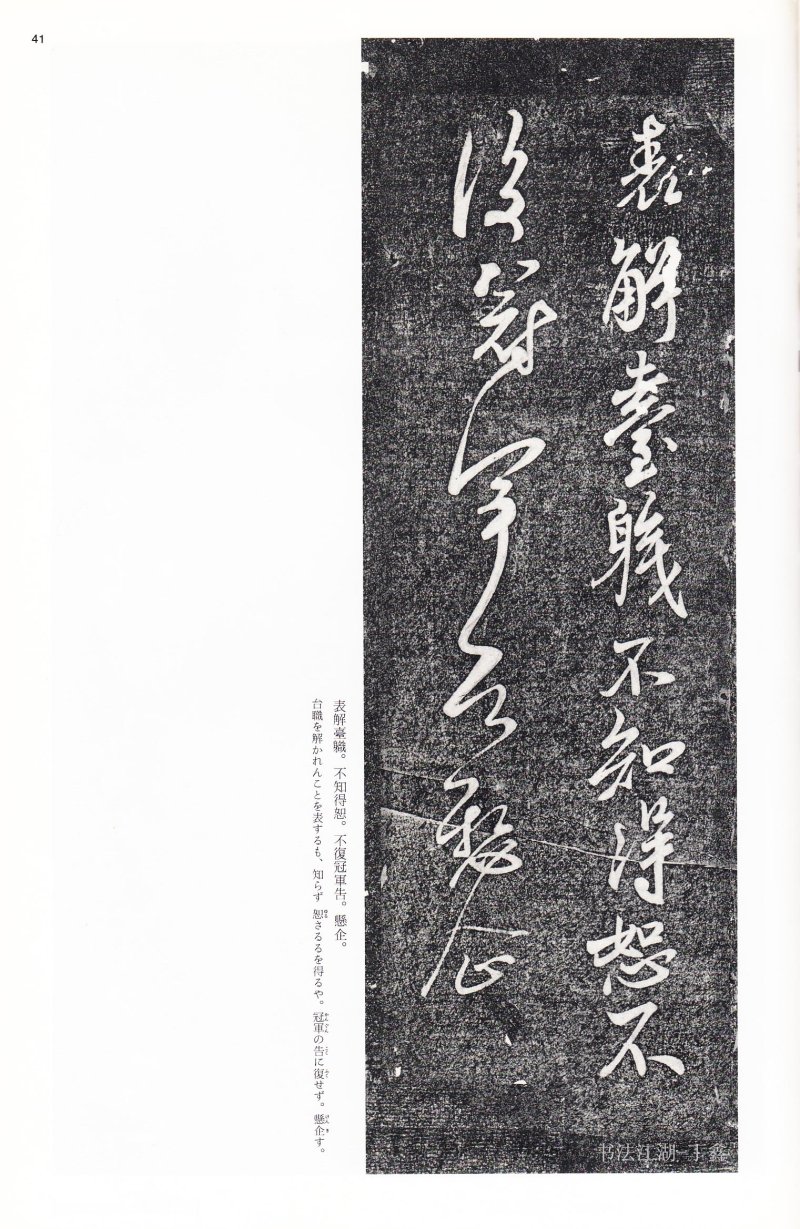 41
表解臺職不知得恕不
復冠軍告懸企
表解臺職。不知得恕。不復冠軍告。懸企。
台職を解かれんことを表するも、知らず恕さるるを得るや。冠軍の告に復せず。懸企す。
书法江湖 于鑫